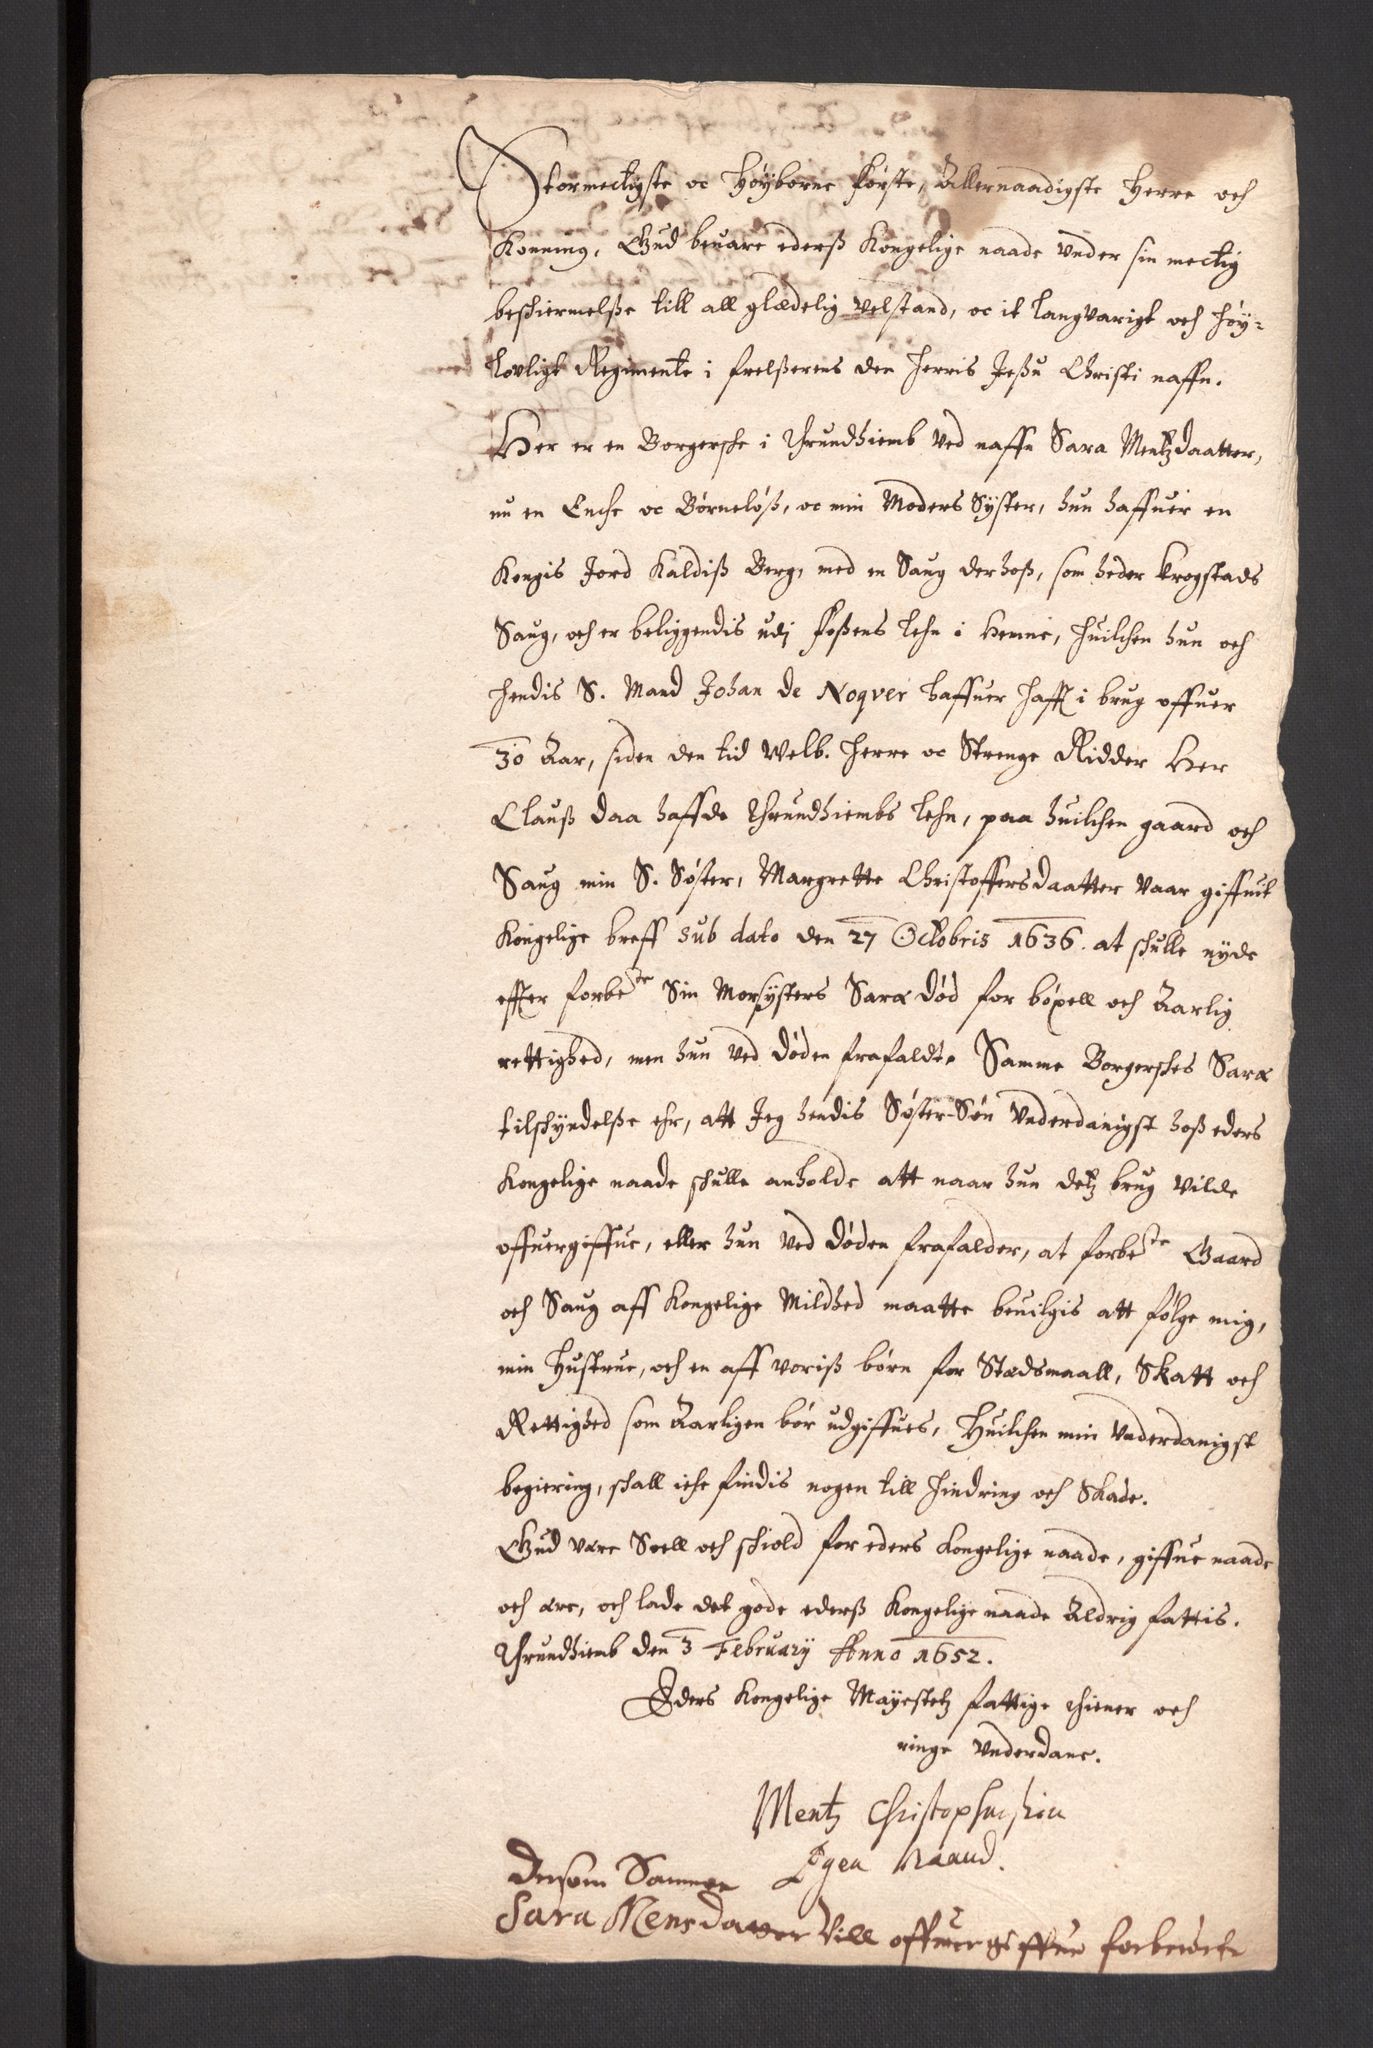 Stormectigste oc Høyborne Første, Allernaadigste Herre och
Konning, Gud beuare ederß Kongelige naade under sin mectig
beschiermelße till all glædelig velstand, oc it langvarigt och Høy-
lovligt Regimente i frelßerens den Herris Jeßu Christi naffn.
Her er en Borgersche i Thrundhiemb ved naffn Sara Mentzdaatter,
nu en Encke oc Børneløß, oc min Moders Syster, hun haffuer en
Kongis Jord Kaldiß Berg, med en Saug derhoß, som heder Krogstads
Saug, och er beliggendis udj Foßens lehn i Hemne, Huilchen hun och
hendis S. Mand Johan de Noqver haffuer hafft i brug offuer
30 Aar, siden den tid Welb. Herre oc Strenge Ridder Her
Clauß Daa haffde Thrundhiembs lehn, paa huilchen gaard och
Saug min S. Søster, Margrette Christoffersdaatter vaar giffuit
Kongelige breff sub dato den 27 Octobris 1636. at schulle nyde
effter forbe.te Sin Morsysters Saræ Død for bøxell och Aarlig
rettighed, men hun ved Døden frafaldt. Samme Borgersches Saræ
tilschyndelße ehr, att Jeg hendis Søster-Søn Underdanigst hoß eders
Kongelige naade schulle anholde att naar hun detz brug vilde
offuergiffue, eller hun ved Døden frafalder, at forbe.te Gaard
och Saug aff Kongelige Mildhed maatte beuilgis att følge mig,
min Hustrue, och en aff voriß børn for Stædsmaall, Skatt och
Rettighed som Aarligen bør udgiffues, Huilchen min Underdanigst
begiering, schall iche findis nogen till Hindring och Skade.
Gud være Soell och schiold for eders Kongelige naade, giffue naade
och ære, och lade det gode ederß Kongelige naade Aldrig fattis.
Thrundhiemb den 3 February Anno 1652.
Eders Kongelige Mayestetz fattige thiener och
ringe Underdane.
Mentz Christophersøn
Egen Haand.
Dersom Samme
Sara Mensdatter Vill offuergiffue forberørte